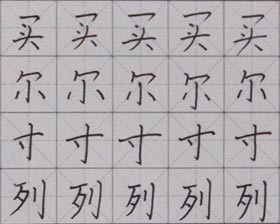 买买买买买
尔尔尔尔尔
寸寸寸寸寸
列列列列列